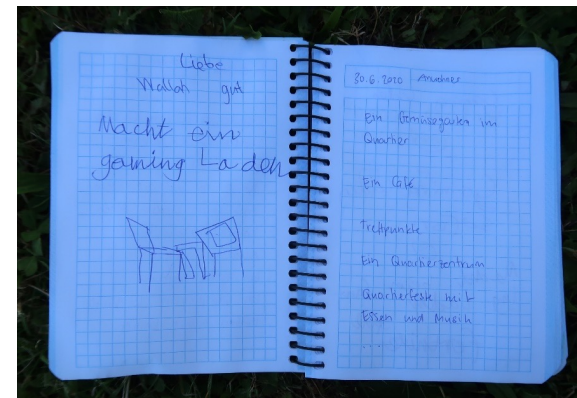 Liebe
Wallah gut
Macht ein
gaming Laden
30.6.2020
Ein Gemüsegarten im
Quartier
Ein Café
Treffpunkte
Ein Quartierzentrum
Quartierfeste mit
Essen und Musik
....